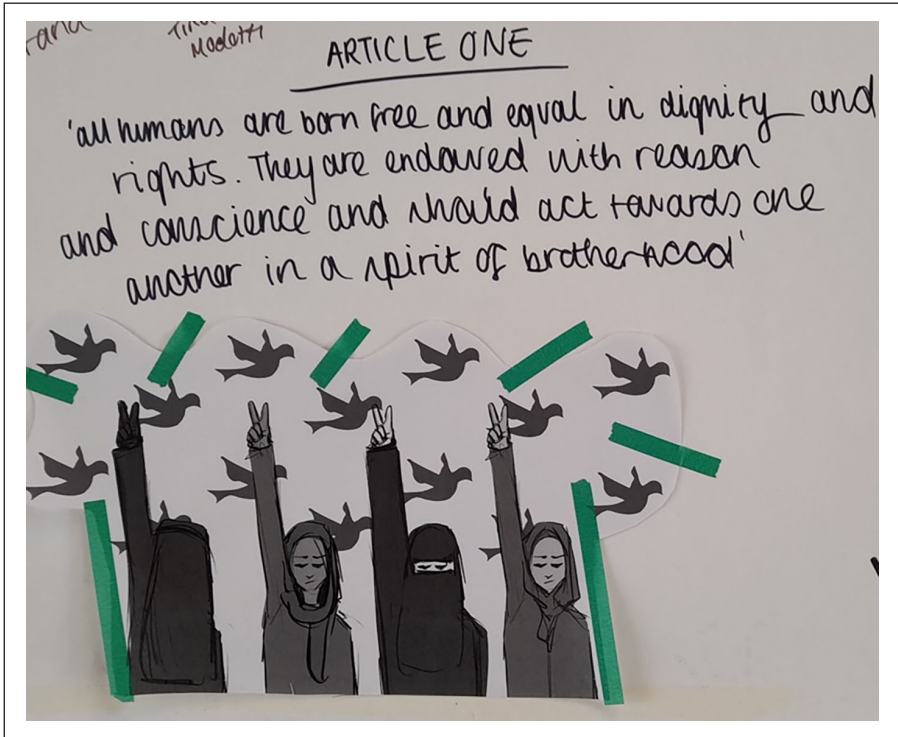 Modotti
ARTICLE ONE
'all humans are born free and equal in dignity and
rights. They are endowed with reason
and conscience and should act towards one
another in a spirit of brotherhood'